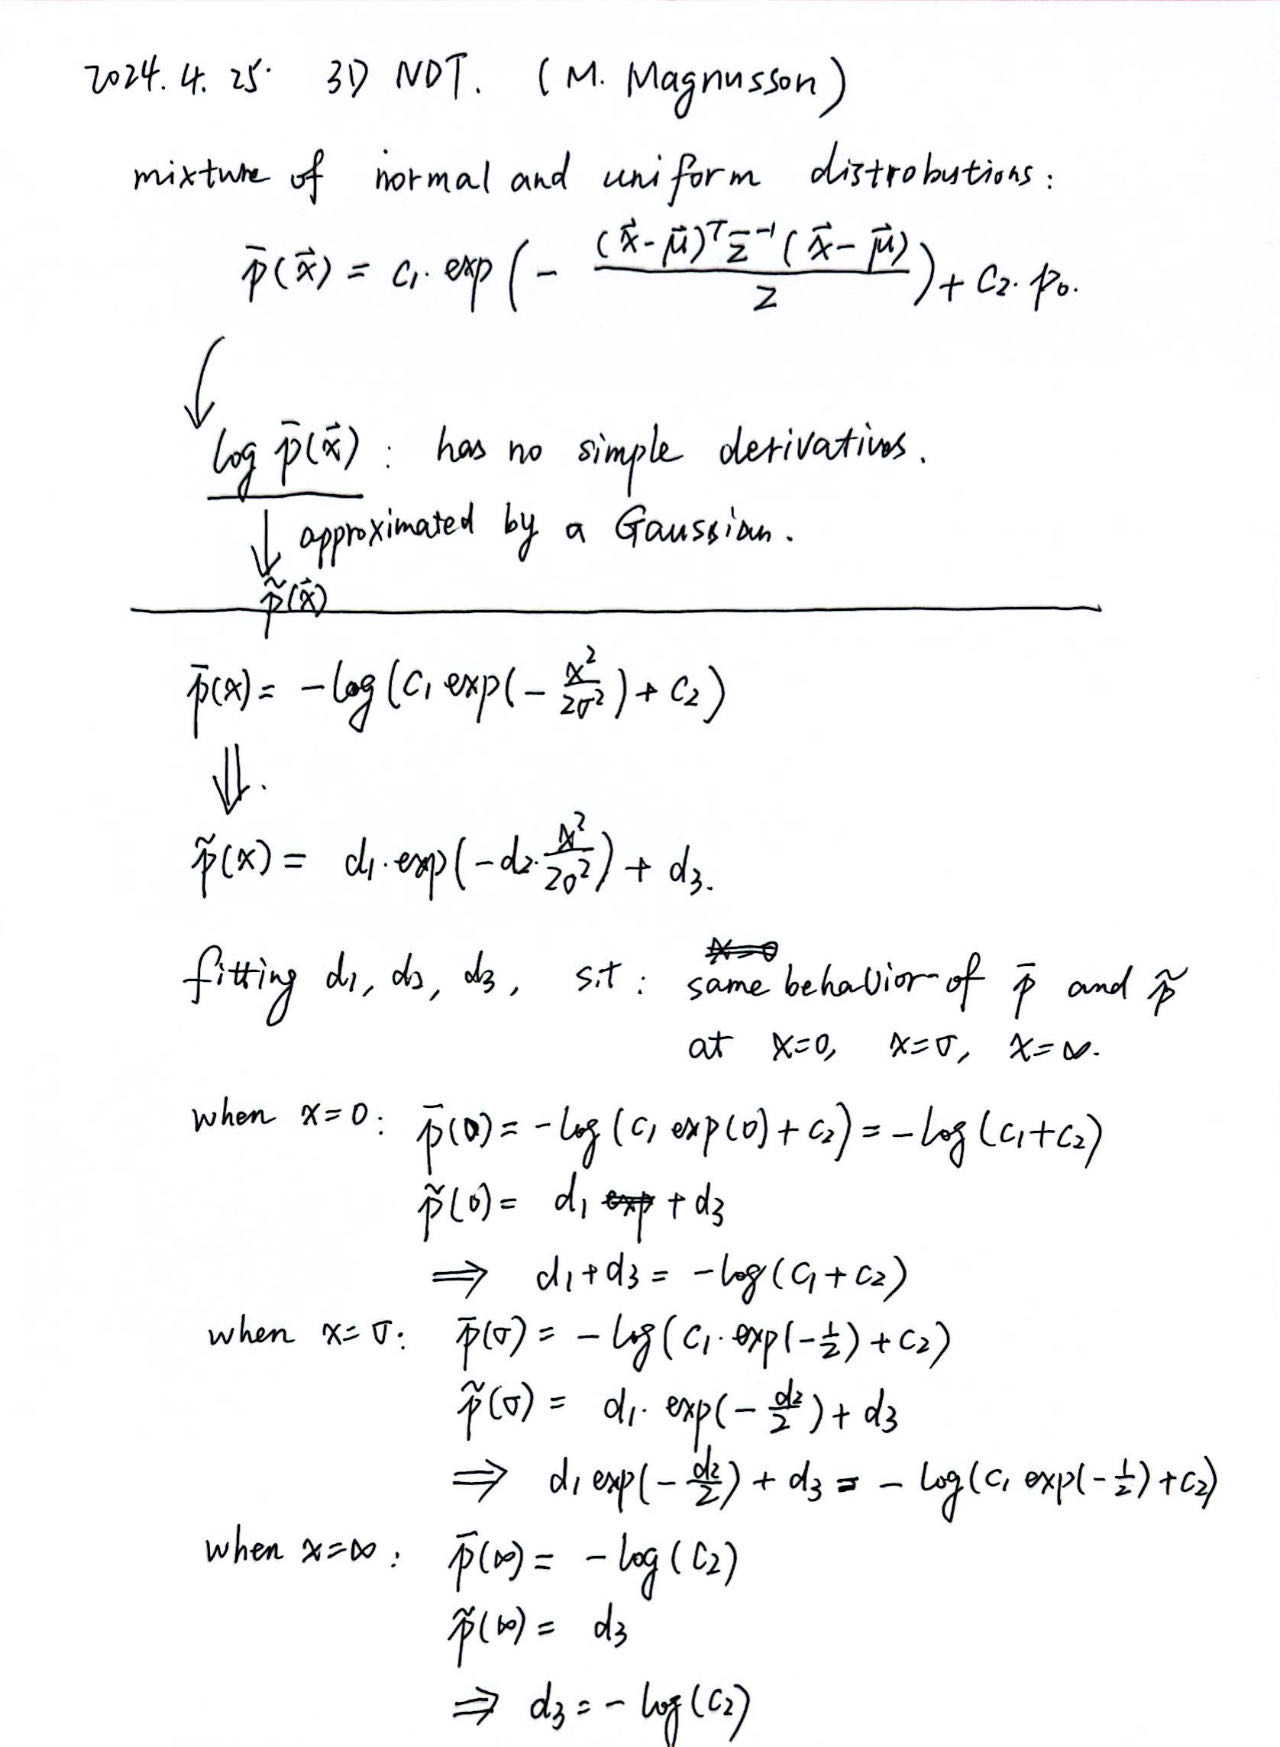 2024.4.25. 3D NDT. (M. Magnusson)
mixture of normal and uniform distrobutions:
p̄(x⃗) = c₁· exp(− (x⃗−μ⃗)ᵀΣ⁻¹(x⃗−μ⃗) / 2) + c₂· p₀.
log p̄(x⃗) : has no simple derivatives.
↓ approximated by a Gaussian.
p̃(x⃗)
p̄(x) = −log(c₁ exp(− x²/2σ²) + c₂)
⇓.
p̃(x) = d₁· exp(−d₂· x²/2σ²) + d₃.
x=0
fitting d₁, d₂, d₃, s.t : same behavior of p̄ and p̃
at x=0, x=σ, x=∞.
when x=0: p̄(0) = −log(c₁ exp(0) + c₂) = −log(c₁+c₂)
p̃(0) = d₁ exp + d₃
⇒ d₁+d₃ = −log(c₁+c₂)
when x=σ: p̄(σ) = −log(c₁· exp(−1/2) + c₂)
p̃(σ) = d₁· exp(− d₂/2) + d₃
⇒ d₁ exp(− d₂/2) + d₃ = − log(c₁ exp(−1/2) + c₂)
when x=∞ : p̄(∞) = − log(c₂)
p̃(∞) = d₃
⇒ d₃ = − log(c₂)